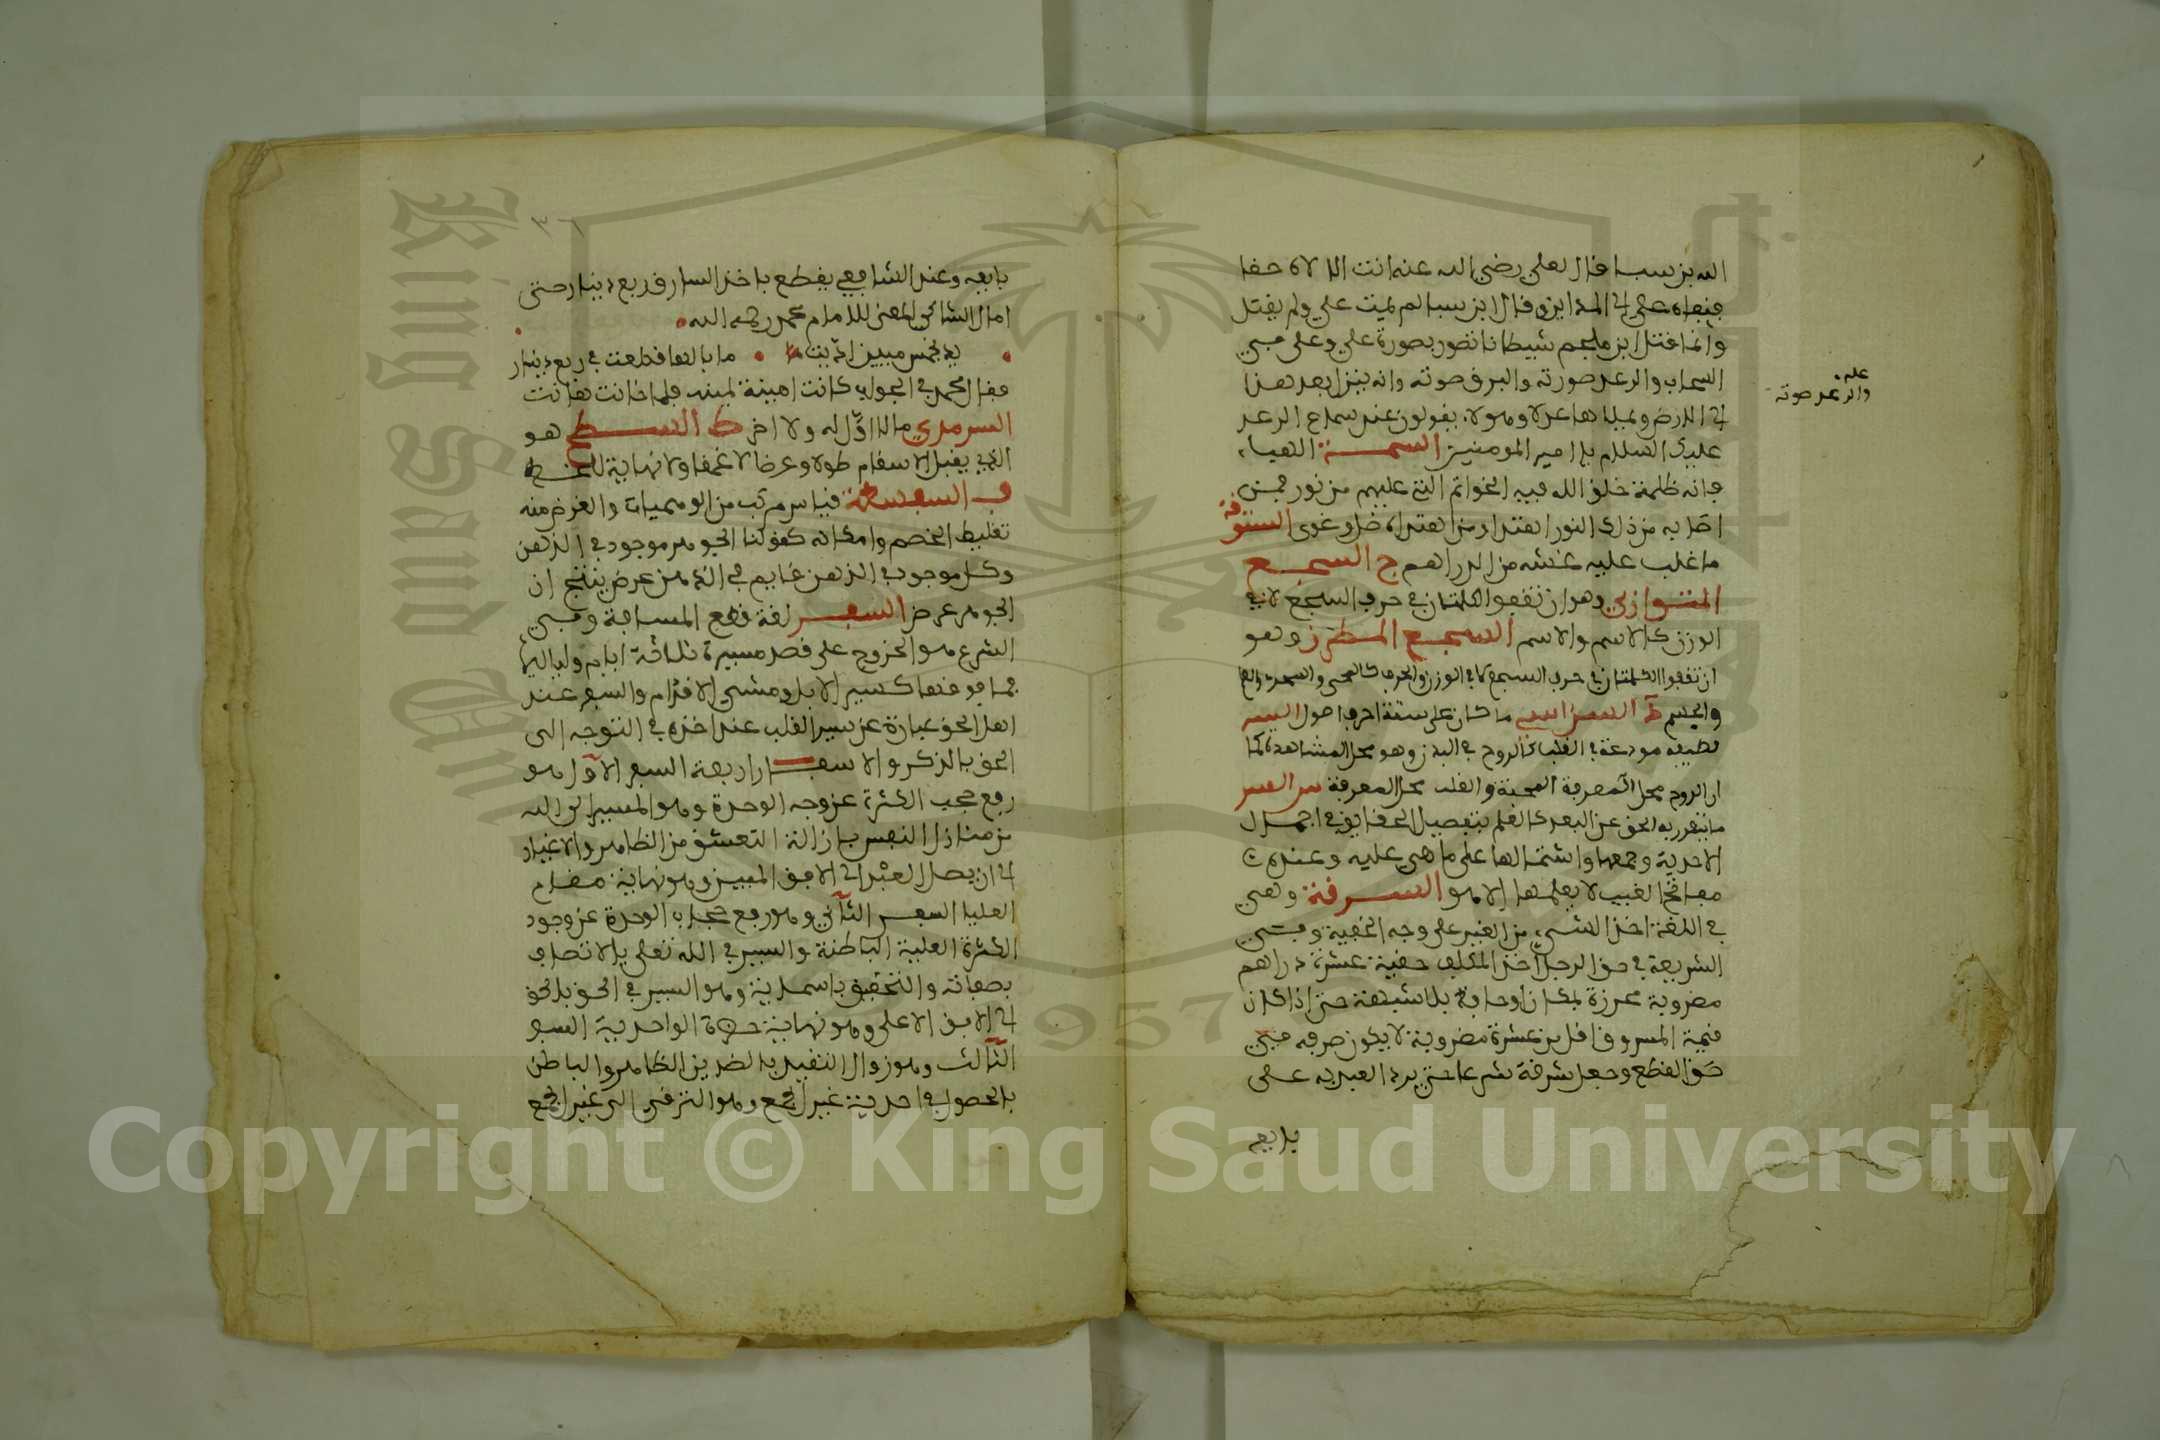 الله بن سبا قال لعلي رضي الله عنه انت الالاه حقا
فنفاه علي الى المداين وقال ابن سبا لم يمت علي ولم يقتل
وانما قتل ابن ملجم شيطانا تصور بصورة علي وعلى في
السحاب والرعد صورته والبرق صوته وانه ينزل بعد هذا
الى الارض ويملاها عدلا وهولا يقولون عند سماع الرعد
عليك السلام يا امير المومنين السبخة الهباء
فانه ظلمة خلق الله فيه الخواتم التي عليهم من نوره فمن
اصابه من ذلك النور اهتدى ومن اهتدا ضل وغوى الستوقة
ما غلب عليه غشه من الدراهم ج السجع
المتوازي وهو ان تتفقوا الكلمتان في حرف السجع لا في
الوزن كالاسم والاسم السجع المطرز وهو
ان تتفقوا الكلمتان في حرف السجع لا في الوزن والحرف
ما كان على ستة احرف اصول السر
لطيفة مودعة في القلب كالروح في البدن وهو محل المشاهدة كما
ان الروح محل المعرفة المحبة والقلب محل المعرفة سر السر
ما يتفرد به الحق عن العبد كالعلم بتفصيل الحقايق في اجمال
الاحدية وجمعها واشتمالها على ما هي عليه وعنده
مفاتح الغيب لا يعلمها إلا هو السرقة وهي
في اللغة اخذ الشيء من الغير على وجه الخفية وفي
الشريعة في حق الرجل اخذ المكلف خفية عشرة دراهم
مضروبة محرزة بمكان او حافظ بلا شبهة حتى اذا كان
قيمة المسروق اقل من عشرة مضروبة لا يكون سرقة في
حق القطع وجعل سرقة شرعا حتى يرد العبد به على
بايعه
عليه
والرعد صوته
٣٦
بايعه وعند الشافعي يقطع باخذ السارق ربع دينار حتى
للامام محمد رحمه الله
يد بخمس مييين ودبت ما بالها قطعت في ربع دينار
فقال محمد في الجواب كانت امينة ثمينه فلما خانت هانت
السرمدي ما لا اول له ولا اخر ط السطح هو
الذي يقبل الانقسام طولا وعرضا لا عمقا ونهاية الخط
ف السفسطة قياس مركب من الوهميات والغرض منه
تغليط الخصم واسكاته كقولنا الجوهر موجود في الذهن
وكل موجود في الذهن قايم في الذهن عرض ينتج ان
الجوهر عرض السفر لغة قطع المسافة وفي
الشرع هو الخروج على قصد مسيرة ثلاثة ايام ولياليها
فما فوقها كسير الابل ومشي الاقدام والسفر عند
اهل الحق عبارة عن سير القلب عند اخذه في التوجه الى
الحق بالذكر والاسفار اربعة السفر الاول هو
رفع حجب الكثرة عن وجه الوحدة وهو المسير الى الله
من منازل النفس بازالة التعشق من الظاهر والاغيار
الى ان يصل العبد الى الافق المبين وهو نهاية مقام
العليا السفر الثاني وهو رفع حجاب الوحدة عن وجود
الكثرة العلمية الباطنة والسير في الله تعلى بالاتصاف
بصفاته والتحقيق باسمايه وهو السير في الحق بالحق
الى الافق الاعلى وهو نهاية حضرة الواحدية السفر
الثالث وهو زوال التقيد بالضدين الظاهر والباطن
بالحصول في احدية عين الجمع وهو الترقي الى عين الجمع
Copyright © King Saud University
King Saud University
1957